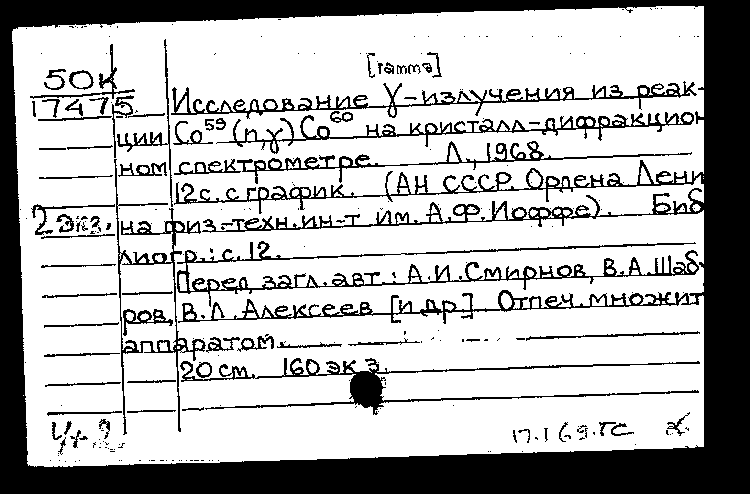 [гamma]
50К
17475
Исследование γ-излучения из реак-
ции Co⁵⁹(n,γ)Co⁶⁰ на кристалл-дифракцион
ном спектрометре. Л., 1968.
12с. с график. (АН СССР. Ордена Лени
2 экз. на физ.-техн. ин-т им. А.Ф.Иоффе). Биб
лиогр.: с. 12.
Перед загл. авт.: А.И.Смирнов, В.А.Шаб-
ров, В.Л.Алексеев [и др.] Отпеч. множит
аппаратом.
20 см. 160 экз.
У+2
17.I 69. ГС